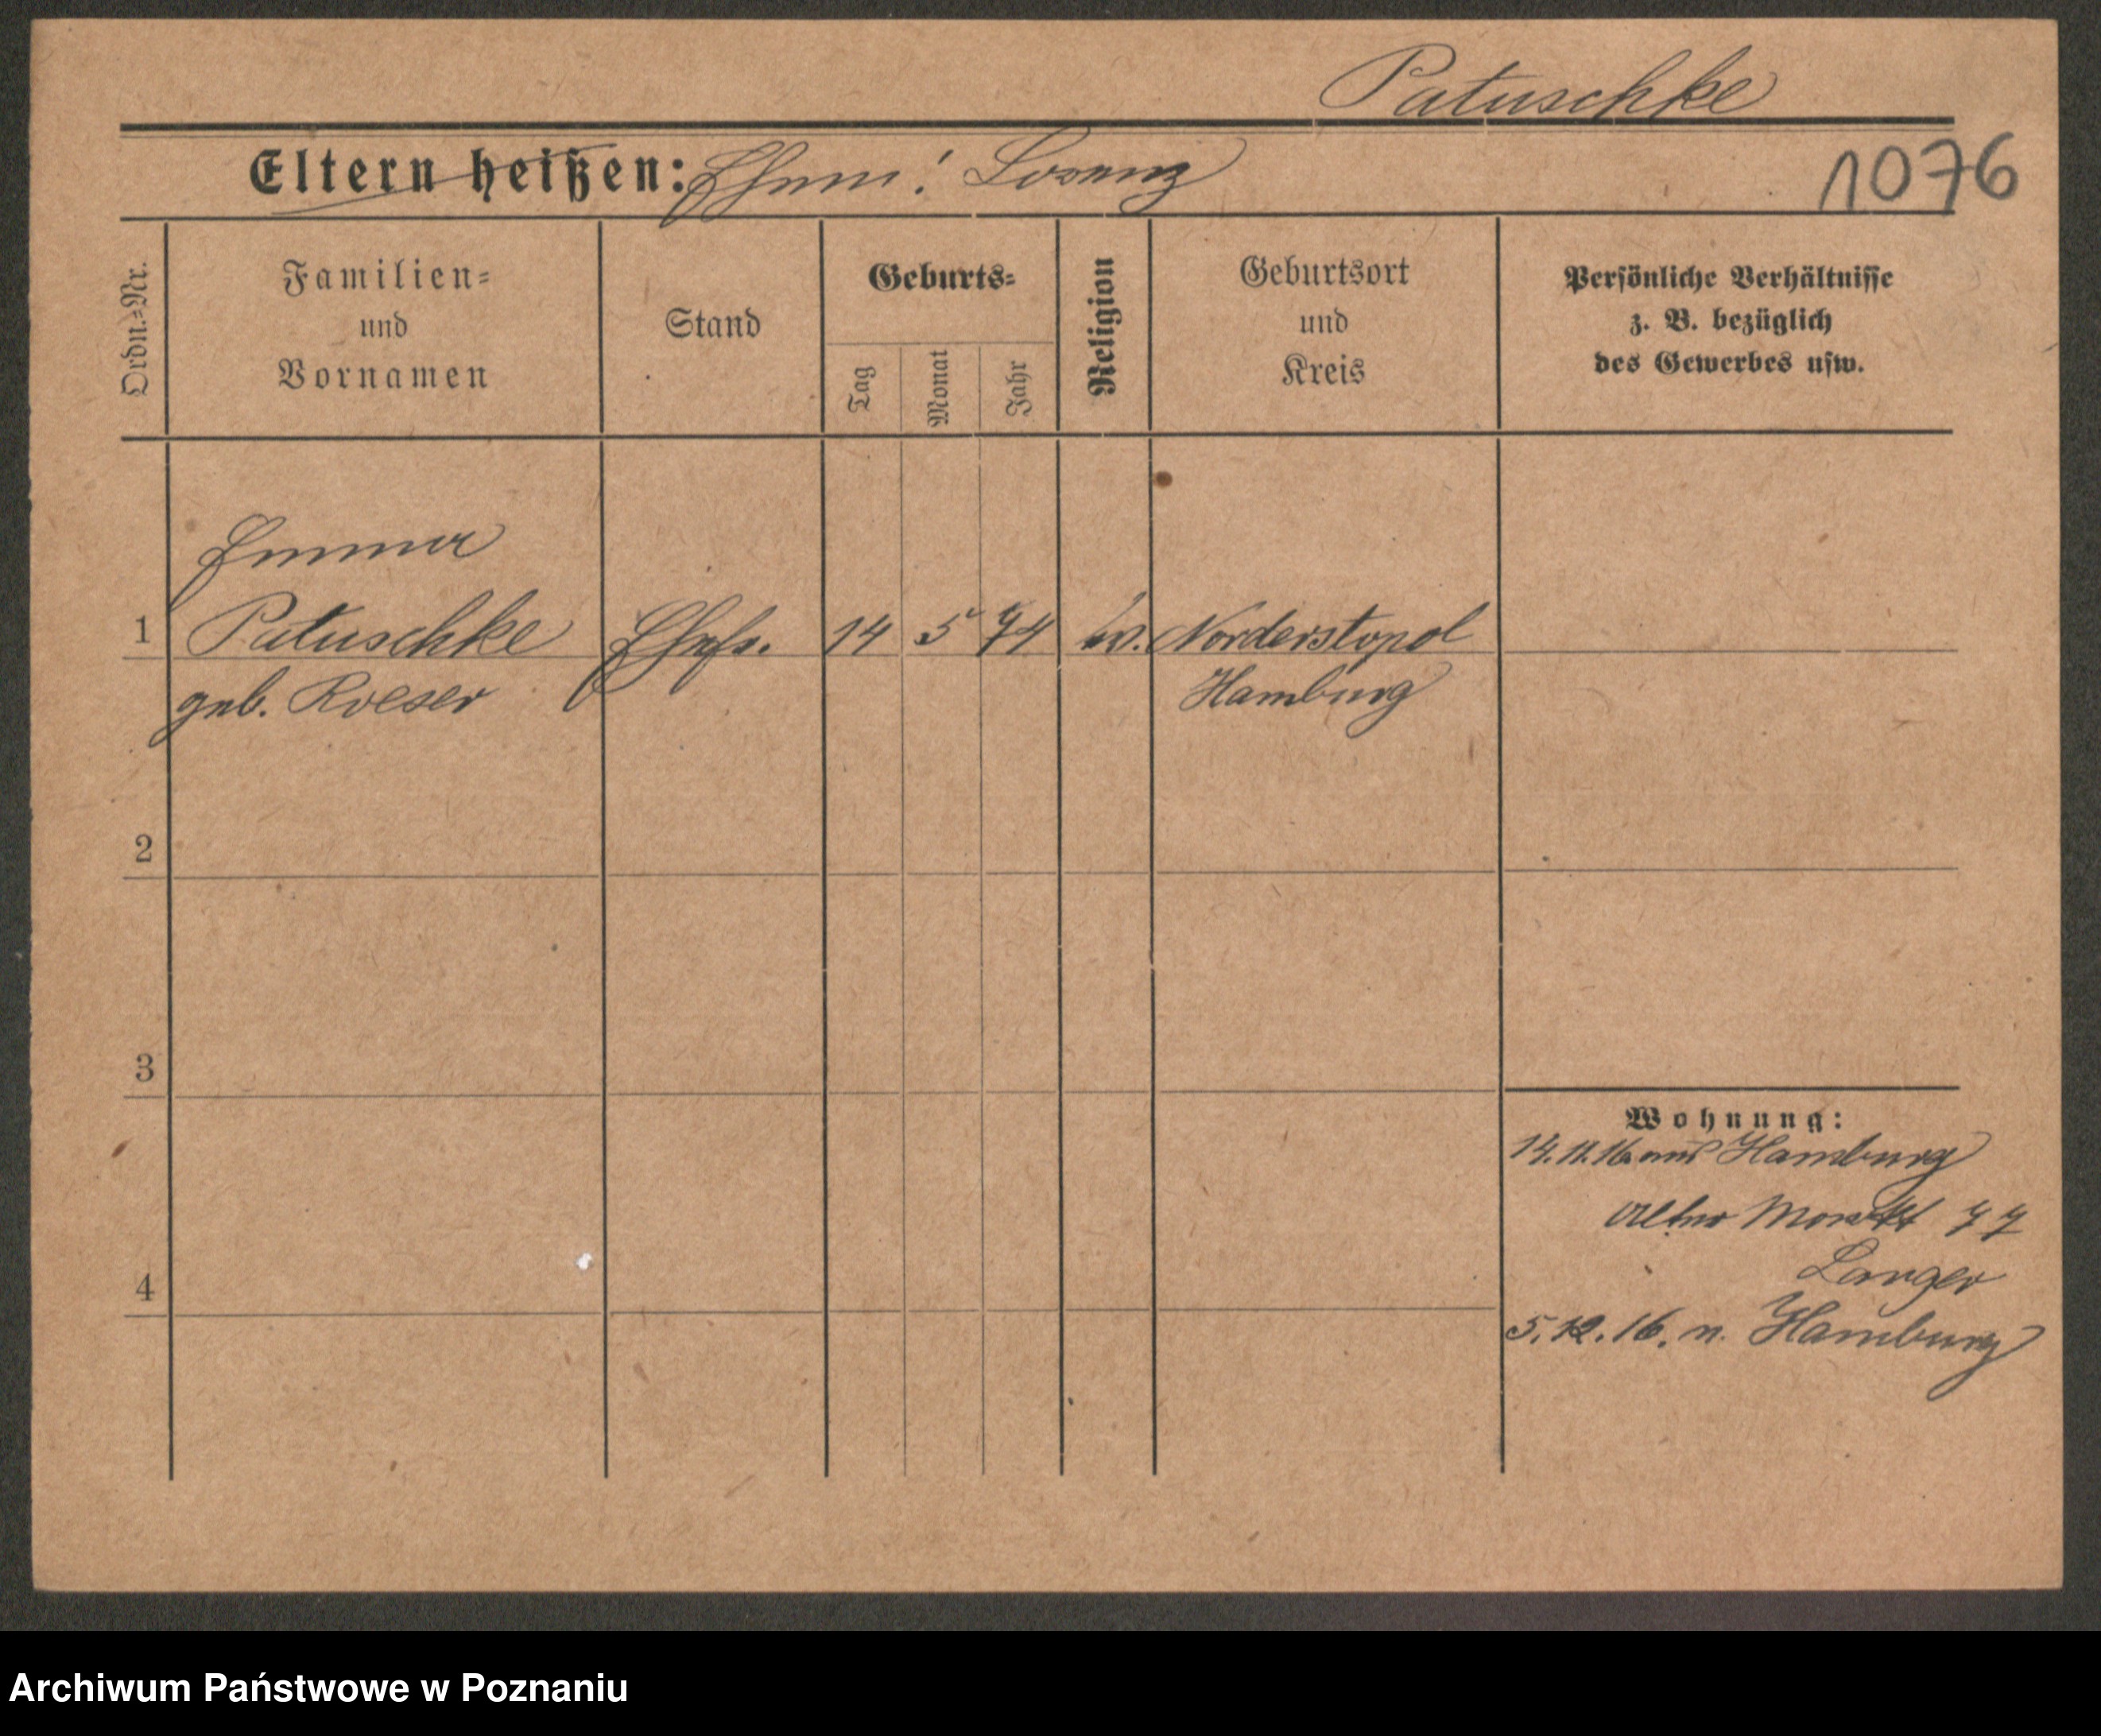 Patuschke
Eltern heißen: Ehem: Lorenz
1076
Ordn.-Nr.
Familien-
und
Vornamen
Stand
Geburts-
Tag
Monat
Jahr
Religion
Geburtsort
und
Kreis
Persönliche Verhältnisse
z. B. bezüglich
des Gewerbes usw.
Emma
1 Patuschke Ehefr. 14 5 74 ev. Norderstapel
geb. Roeser Hamburg
2
3
Wohnung:
14.11.16 aus Hamburg
Alter Markt 77
Langer
4
5.12.16. n. Hamburg
Archiwum Państwowe w Poznaniu